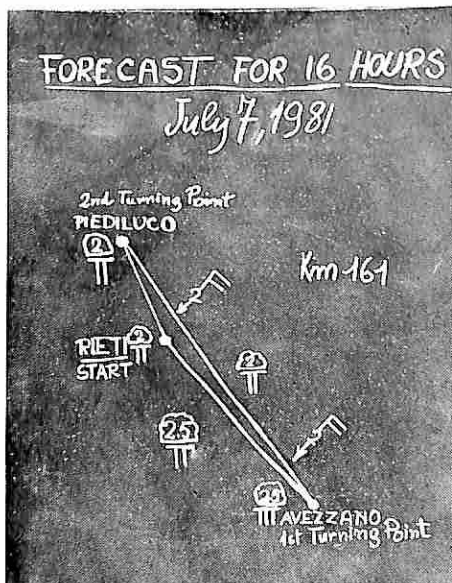 FORECAST FOR 16 HOURS
July 7, 1981
2nd Turning Point
PIEDILUCO
2
Km 161
2
RIETI
2
START
2.5
2
AVEZZANO
1st Turning Point